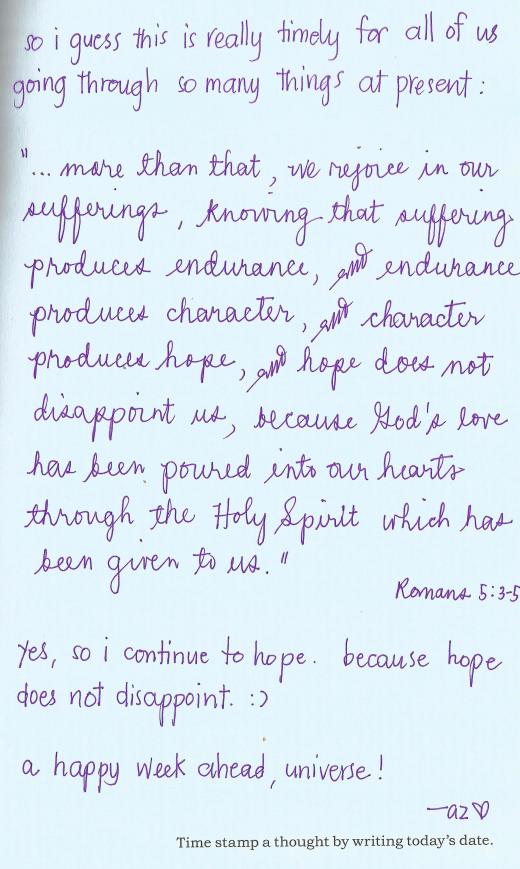 so i guess this is really timely for all of us
going through so many things at present :
"... more than that, we rejoice in our
sufferings, knowing that suffering
produces endurance, and endurance
produces character, and character
produces hope, and hope does not
disappoint us, because God's love
has been poured into our hearts
through the Holy Spirit which has
been given to us."
Romans 5:3-5
yes, so i continue to hope. because hope
does not disappoint. :)
a happy week ahead, universe!
—az♡
Time stamp a thought by writing today's date.